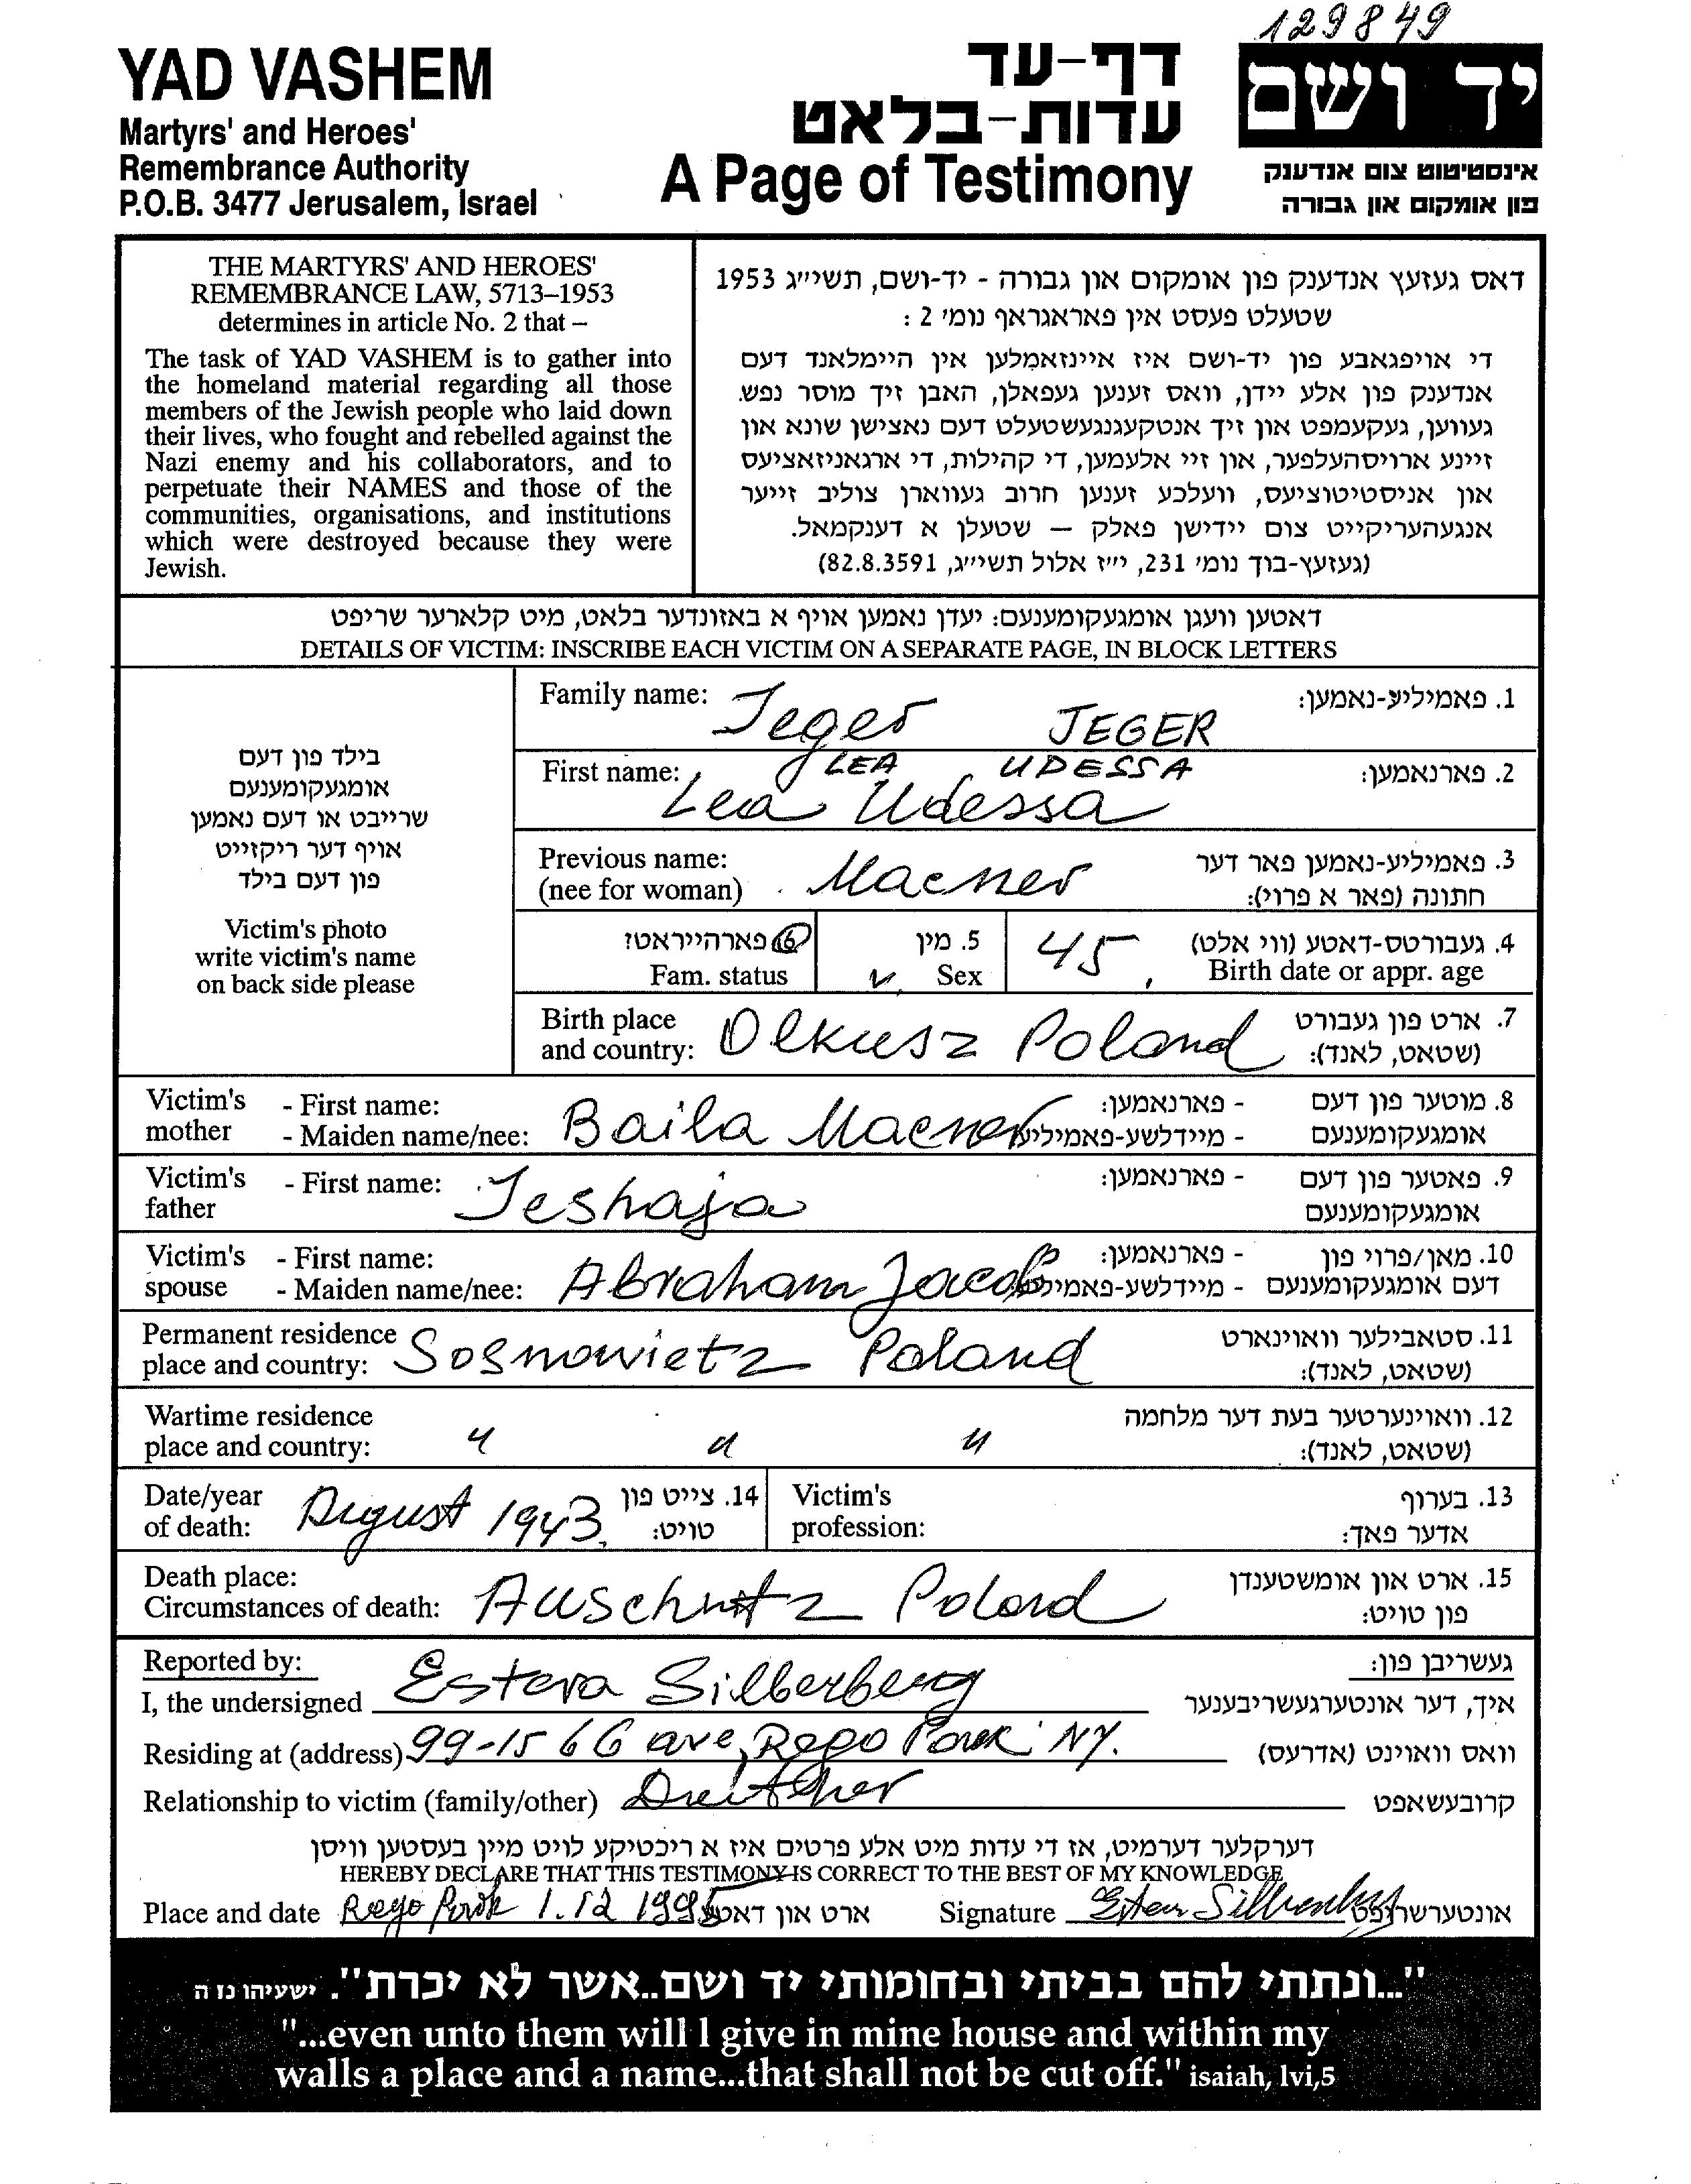 129849
YAD VASHEM
Martyrs' and Heroes'
Remembrance Authority
P.O.B. 3477 Jerusalem, Israel
דף-עד
עדות-בלאט
A Page of Testimony
יד ושם
אינסטיטוט צום אנדענק
פון אומקום און גבורה
THE MARTYRS' AND HEROES'
REMEMBRANCE LAW, 5713–1953
determines in article No. 2 that –
The task of YAD VASHEM is to gather into
the homeland material regarding all those
members of the Jewish people who laid down
their lives, who fought and rebelled against the
Nazi enemy and his collaborators, and to
perpetuate their NAMES and those of the
communities, organisations, and institutions
which were destroyed because they were
Jewish.
דאס געזעץ אנדענק פון אומקום און גבורה - יד-ושם, תשי״ג 1953
שטעלט פעסט אין פאראגראף נומ׳ 2 :
די אויפגאבע פון יד-ושם איז איינזאמלען אין היימלאנד דעם
אנדענק פון אלע יידן, וואס זענען געפאלן, האבן זיך מוסר נפש.
געווען, געקעמפט און זיך אנטקעגנגעשטעלט דעם נאצישן שונא און
זיינע ארויסהעלפער, און זיי אלעמען, די קהילות, די ארגאניזאציעס
און אניסטיטוציעס, וועלכע זענען חרוב געווארן צוליב זייער
אנגעהעריקייט צום יידישן פאלק – שטעלן א דענקמאל.
(געזעץ-בוך נומ׳ 231, י״ז אלול תשי״ג, 82.8.3591)
דאטען וועגן אומגעקומענעם: יעדן נאמען אויף א באזונדער בלאט, מיט קלארער שריפט
DETAILS OF VICTIM: INSCRIBE EACH VICTIM ON A SEPARATE PAGE, IN BLOCK LETTERS
בילד פון דעם
אומגעקומענעם
שרייבט או דעם נאמען
אויף דער ריקזייט
פון דעם בילד
Victim's photo
write victim's name
on back side please
Family name: Jeger JEGER 1. פאמיליע-נאמען:
LEA UDESSA
First name: Lea Udessa 2. פארנאמען:
Previous name: Macner 3. פאמיליע-נאמען פאר דער
(nee for woman) חתונה (פאר א פרוי):
6 פארהייראט?
Fam. status
5. מין
Sex
45 4. געבורטס-דאטע (ווי אלט)
Birth date or appr. age
Birth place 7. ארט פון געבורט
and country: Olkusz Poland (שטאט, לאנד):
Victim's - First name: - פארנאמען: 8. מוטער פון דעם
mother - Maiden name/nee: Baila Macner - מיידלשע-פאמיליע אומגעקומענעם
Victim's - First name: Jeshaja - פארנאמען: 9. פאטער פון דעם
father אומגעקומענעם
Victim's - First name: - פארנאמען: 10. מאן/פרוי פון
spouse - Maiden name/nee: Abraham Jacob - מיידלשע-פאמיליע דעם אומגעקומענעם
Permanent residence 11. סטאבילער וואוינארט
place and country: Sosnowietz Poland (שטאט, לאנד):
Wartime residence 12. וואוינערטער בעת דער מלחמה
place and country: " " " (שטאט, לאנד):
Date/year 14. צייט פון
of death: August 1943 טויט:
Victim's 13. בערוף
profession: אדער פאך:
Death place: 15. ארט און אומשטענדן
Circumstances of death: Auschwitz Poland פון טויט:
Reported by: געשריבן פון:
I, the undersigned Estera Silberberg איך, דער אונטערגעשריבענער
Residing at (address) 99-15 66 ave, Rego Park NY. וואס וואוינט (אדרעס)
Relationship to victim (family/other) קרובעשאפט
דערקלער דערמיט, אז די עדות מיט אלע פרטים איז א ריכטיקע לויט מיין בעסטען וויסן
HEREBY DECLARE THAT THIS TESTIMONY IS CORRECT TO THE BEST OF MY KNOWLEDGE
Place and date Rego Park 1.12 1995 ארט און דאטע Signature Ester Silberberg אונטערשריפט
"...ונתתי להם בביתי ובחומותי יד ושם..אשר לא יכרת". ישעיהו נז ה
"...even unto them will I give in mine house and within my
walls a place and a name...that shall not be cut off." isaiah, lvi,5